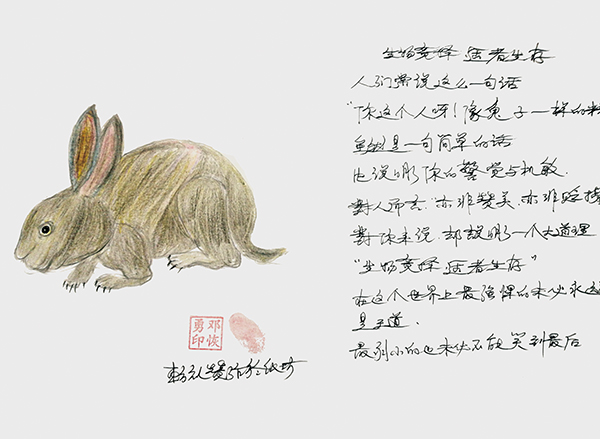 生物竞择 适者生存
人们常说这么一句话
"你这个人呀！像兔子一样的
虽然是一句简单的话
也说明你的警觉与机敏.
對人而言.亦非赞美.亦非贬
對你来说 却説明了一个大道理
"生物竞择 适者生存"
在这个世界上最强悍的未必永远
是王道.
最弱小的也未必不能笑到最后
邓恢
勇印